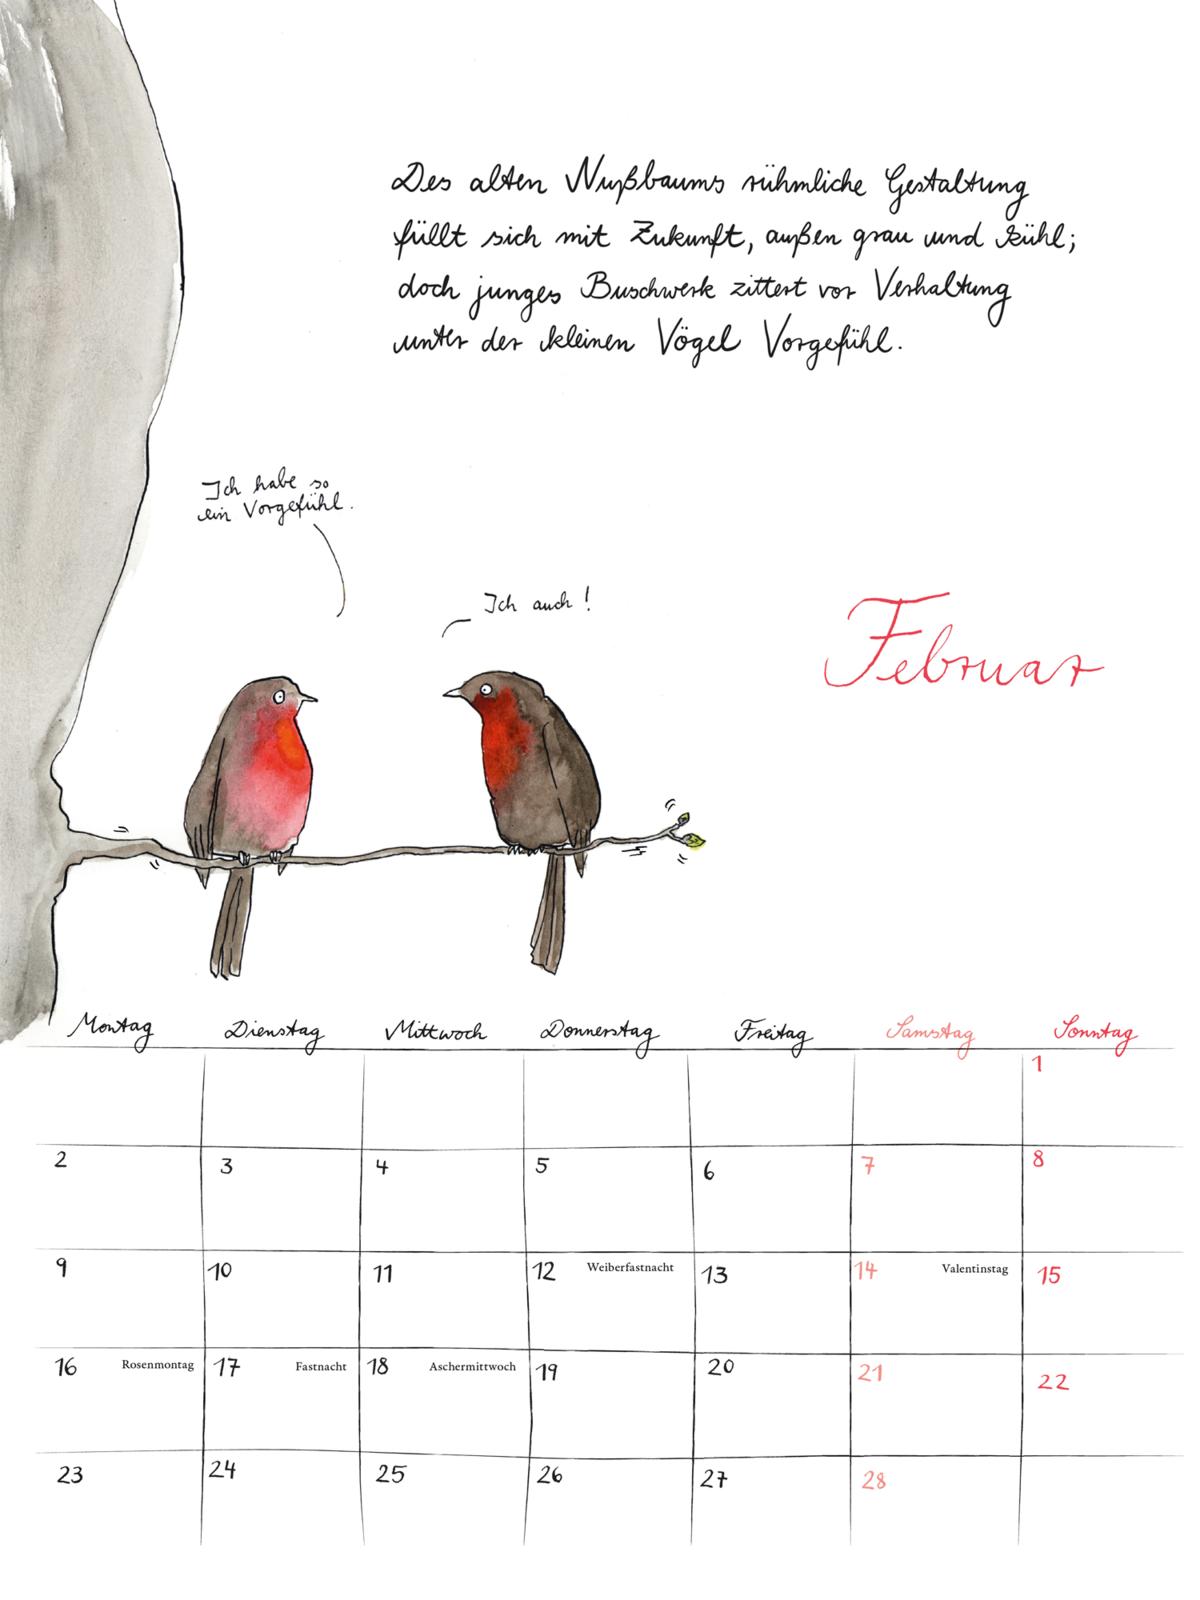 Des alten Nußbaums rühmliche Gestaltung
füllt sich mit Zukunft, außen grau und kühl;
doch junges Buschwerk zittert vor Verhaltung
unter der kleinen Vögel Vorgefühl.
Ich habe so
ein Vorgefühl.
Ich auch!
Februar
Montag Dienstag Mittwoch Donnerstag Freitag Samstag Sonntag
1
2 3 4 5 6 7 8
9 10 11 12 Weiberfastnacht 13 14 Valentinstag 15
16 Rosenmontag 17 Fastnacht 18 Aschermittwoch 19 20 21 22
23 24 25 26 27 28